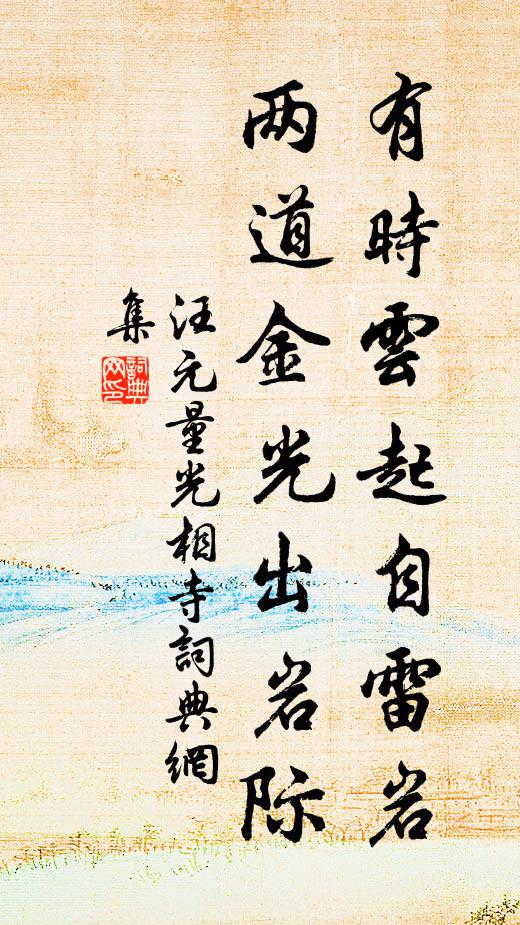 有時雲起自雷岩
两道金光出岩际
汪元量光相寺詞典網
集
詞典
网印